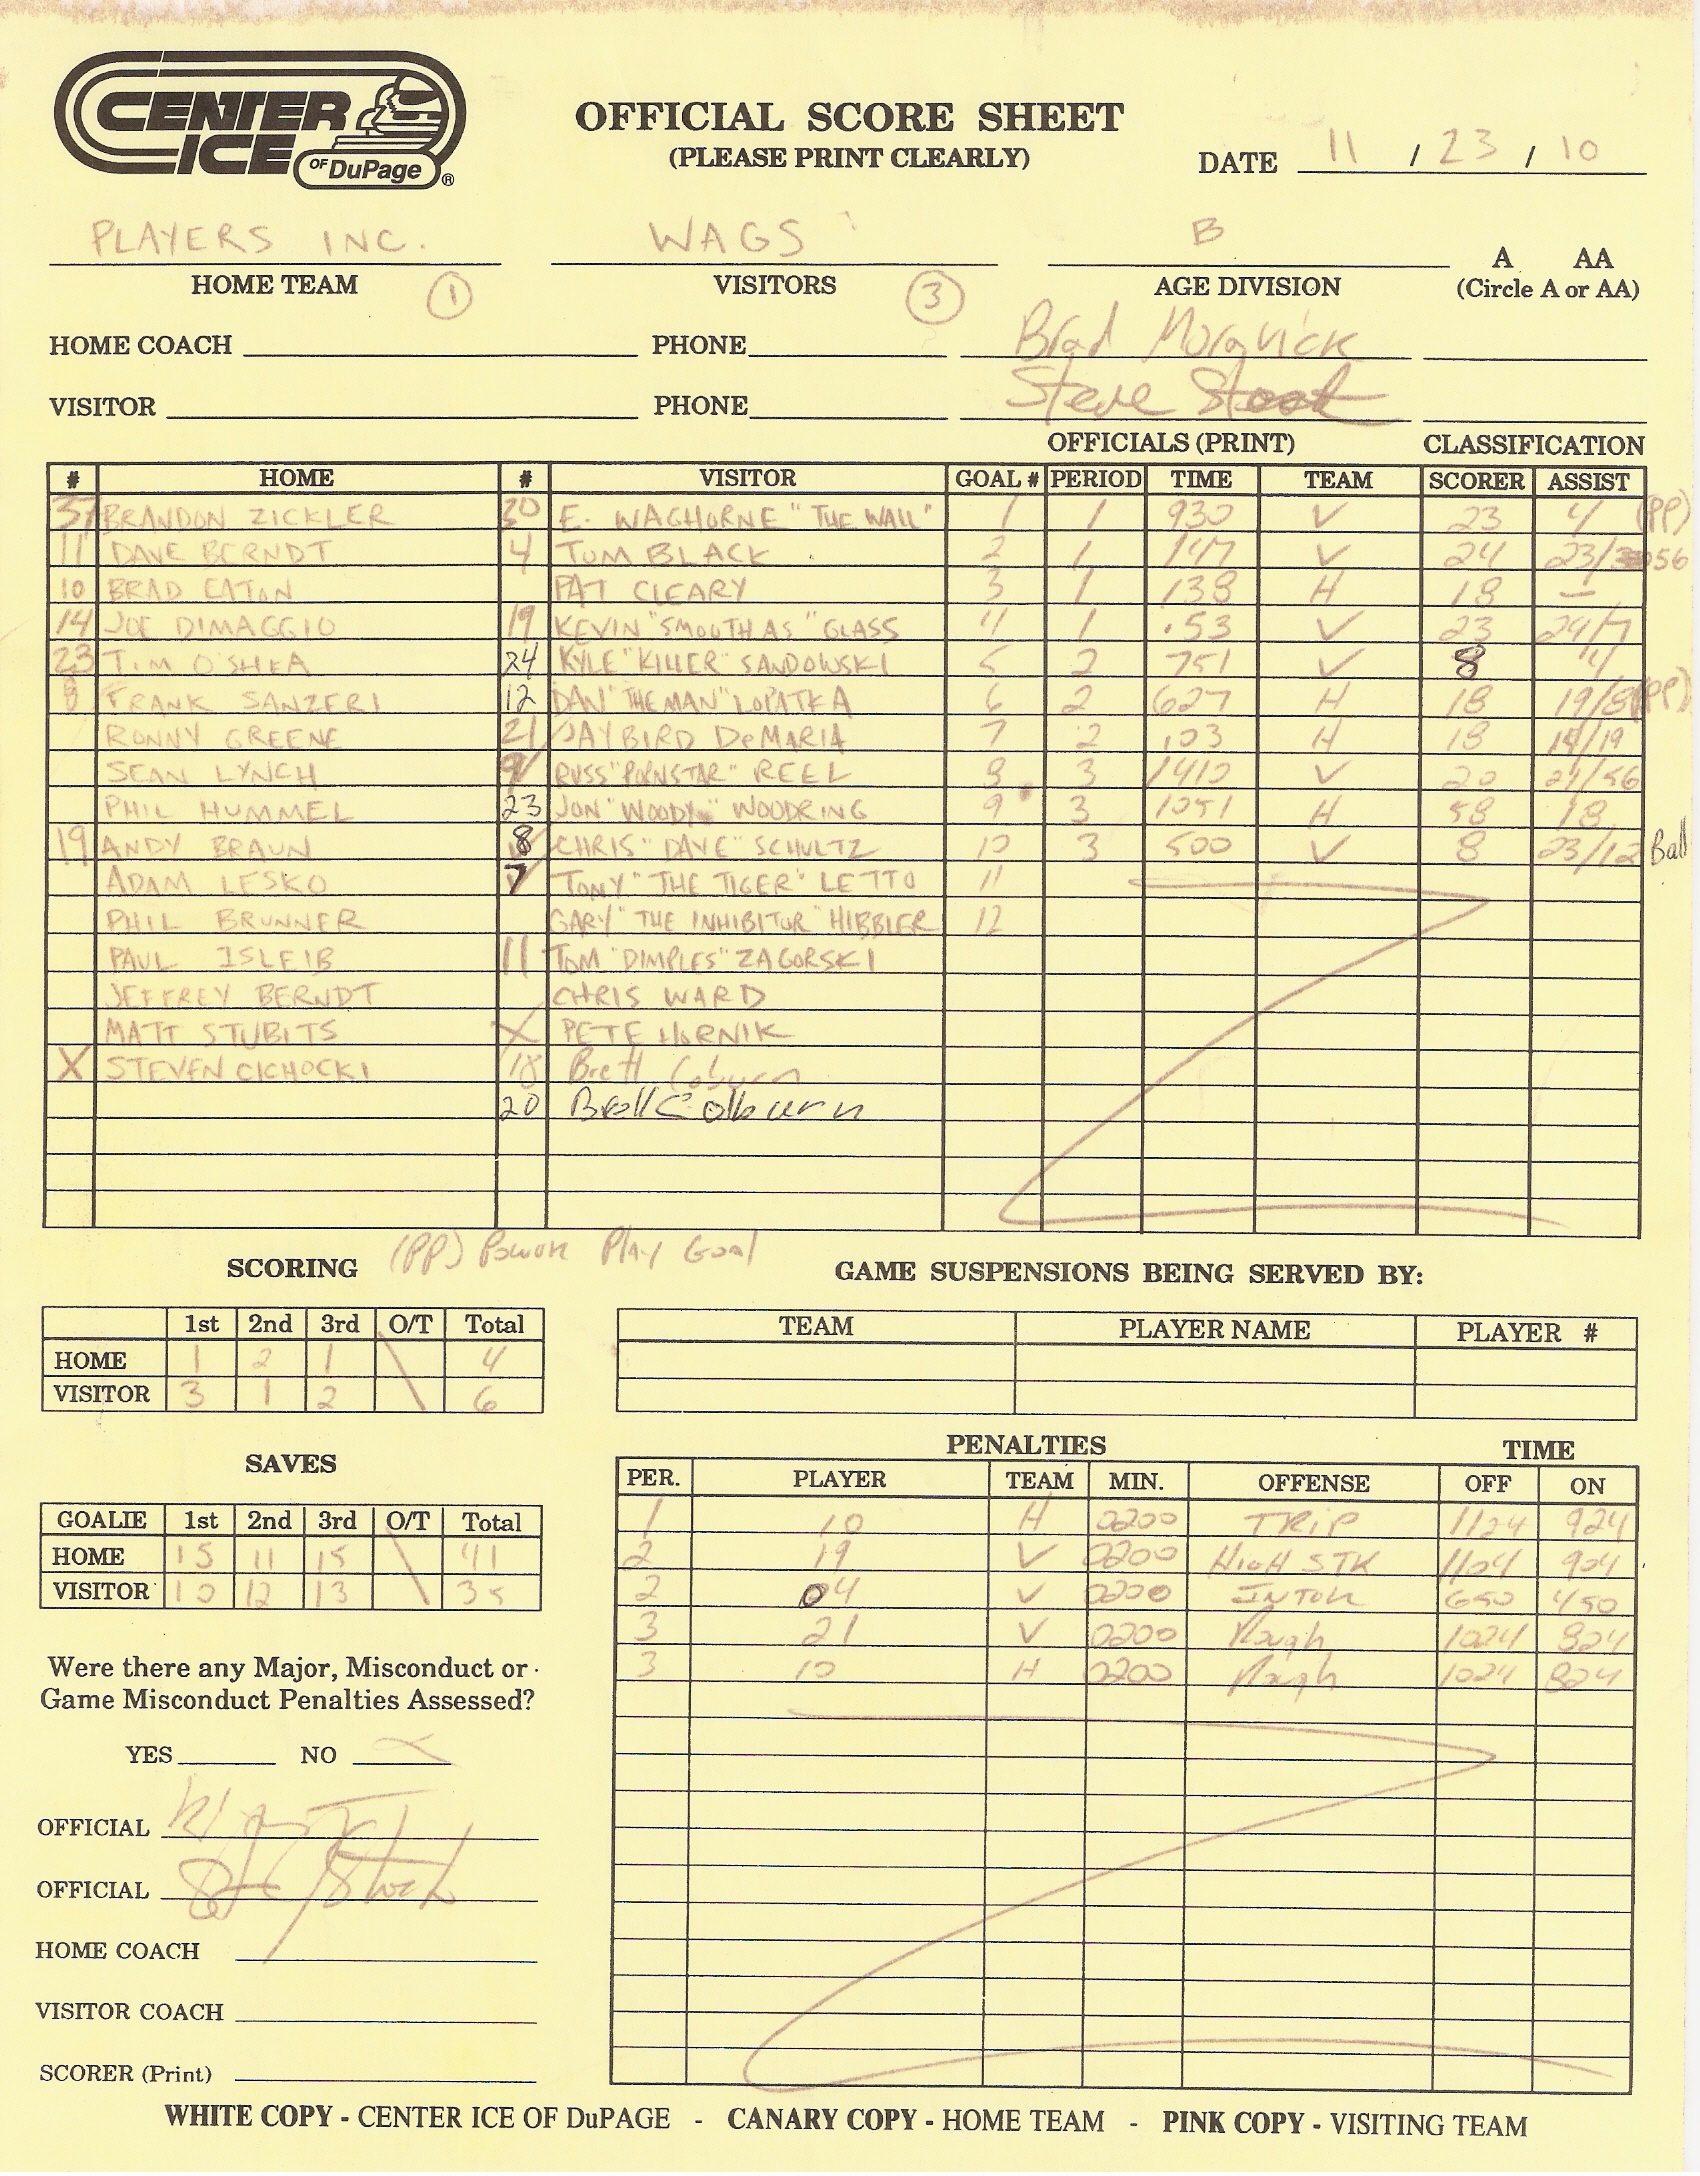 CENTER ICE OF DuPage ®
OFFICIAL SCORE SHEET
(PLEASE PRINT CLEARLY)
DATE 11 / 23 / 10
PLAYERS INC. WAGS B
HOME TEAM 1 VISITORS 3 AGE DIVISION A AA (Circle A or AA)
HOME COACH PHONE Brad
VISITOR PHONE Steve
OFFICIALS (PRINT) CLASSIFICATION
# HOME # VISITOR GOAL # PERIOD TIME TEAM SCORER ASSIST
37 BRANDON ZICKLER 30 E. WAGHORNE "THE WALL" 1 1 930 V 23 4 (PP)
11 DAVE BERNDT 4 TOM BLACK 2 1 147 V 24 23/ 56
10 BRAD EATON PAT CLEARY 3 1 138 H 18 —
14 JOE DIMAGGIO 19 KEVIN "SMOOTH AS" GLASS 4 1 .53 V 23 24/7
23 TIM O'SHEA 24 KYLE "KILLER" SANDOWSKI 5 2 751 V 8 4
8 FRANK SANZERI 12 DAN "THE MAN" LOPATKA 6 2 627 H 18 19/8 (PP)
RONNY GREENE 21 JAYBIRD DeMARIA 7 2 103 H 18 14/19
SEAN LYNCH 9 RUSS "PORNSTAR" REEL 8 3 1410 V 20 21/56
PHIL HUMMEL 23 JON "WOODY" WOODRING 9 3 1051 H 58 18
19 ANDY BRAUN 8 CHRIS "DAVE" SCHULTZ 10 3 500 V 8 23/12
ADAM LESKO 7 TONY "THE TIGER" LETTO 11
PHIL BRUNNER GARY "THE INHIBITOR" HIBBLER 12
PAUL ISLEIB 11 TOM "DIMPLES" ZAGORSKI
JEFFREY BERNDT CHRIS WARD
MATT STUBITS X PETE HORNIK
X STEVEN CICHOCKI 18 Brett Coburn
20 Colburn
SCORING (PP) Power Play Goal
GAME SUSPENSIONS BEING SERVED BY:
1st 2nd 3rd O/T Total
HOME 1 2 1 \ 4
VISITOR 3 1 2 \ 6
TEAM PLAYER NAME PLAYER #
SAVES
GOALIE 1st 2nd 3rd O/T Total
HOME 15 11 15 \ 41
VISITOR 10 12 13 \ 35
PENALTIES TIME
PER. PLAYER TEAM MIN. OFFENSE OFF ON
1 10 H 0200 TRIP 1124 924
2 19 V 0200 HIGH STK 1104 904
2 04 V 0200 650 450
3 21 V 0200 Rough 1024 824
3 10 H 0200 Rough 1024 824
Were there any Major, Misconduct or
Game Misconduct Penalties Assessed?
YES NO X
OFFICIAL
OFFICIAL
HOME COACH
VISITOR COACH
SCORER (Print)
WHITE COPY - CENTER ICE OF DuPAGE - CANARY COPY - HOME TEAM - PINK COPY - VISITING TEAM